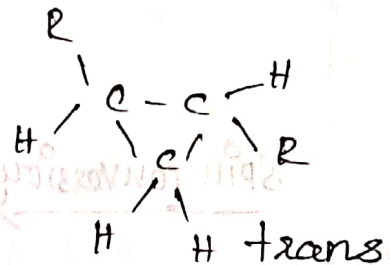 R
H
C - C
H
C R
H H trans